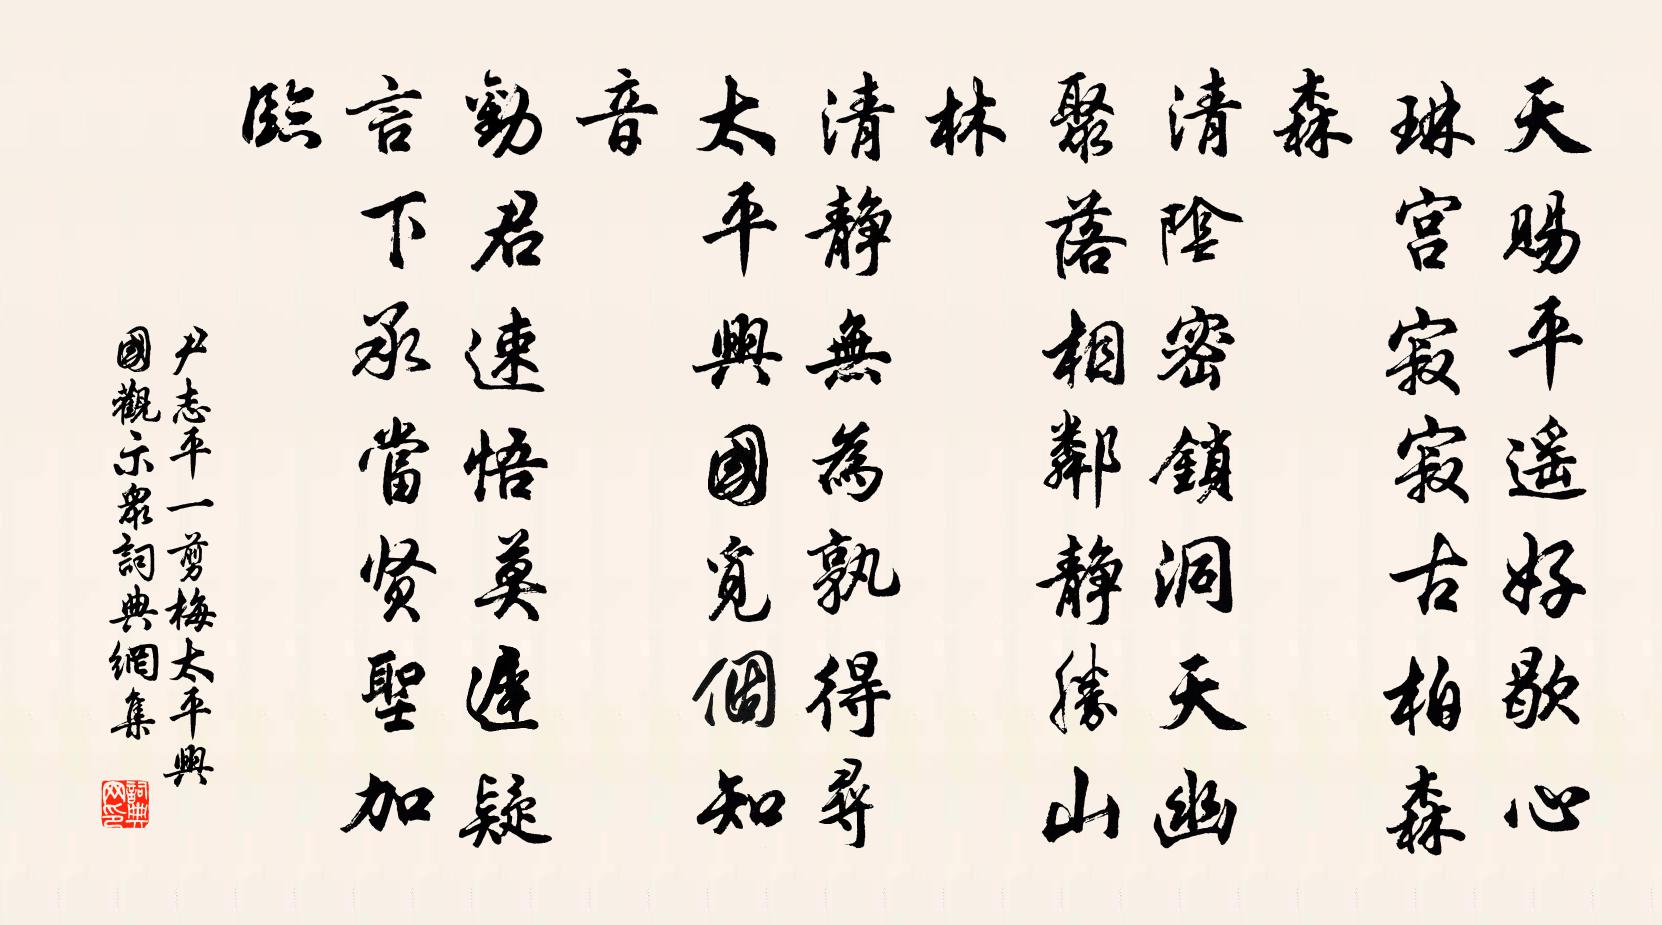 天賜平遥好歇心
琳宫寂寂古柏森
森
清陰密鎖洞天幽
聚落相鄰静勝山
林
清静無為孰得尋
太平興國覓個知
音
勸君速悟莫遲疑
言下承當贤聖加
臨
尹志平一剪梅太平興
國觀示衆詞典網集
詞典
网印